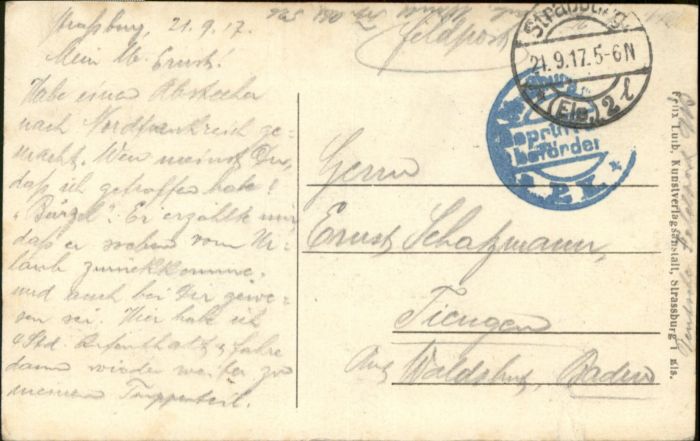 Straßburg, 21.9.17.
Mein lb. Ernst!
Habe einen Abstecher
nach Nordfrankreich ge=
macht. Wen meinst Du,
daß ich getroffen habe!
"Bürgel". Er erzählte mir,
daß er soeben vom Ur=
laub zurückkomme,
und auch bei Dir gewe=
sen sei. Hier habe ich
4 Std. Aufenthalt u. fahre
dann wieder weiter zu
meinem Truppenteil.
Feldpost
Straßburg
21.9.17.5-6N
(Els.) 2 l
Geprüft
befördern
Herrn
Ernst Schatzmann,
Tiengen
Amt Waldshut, Baden
Felix Luib, Kunstverlagsanstalt, Strassburg i. Els.